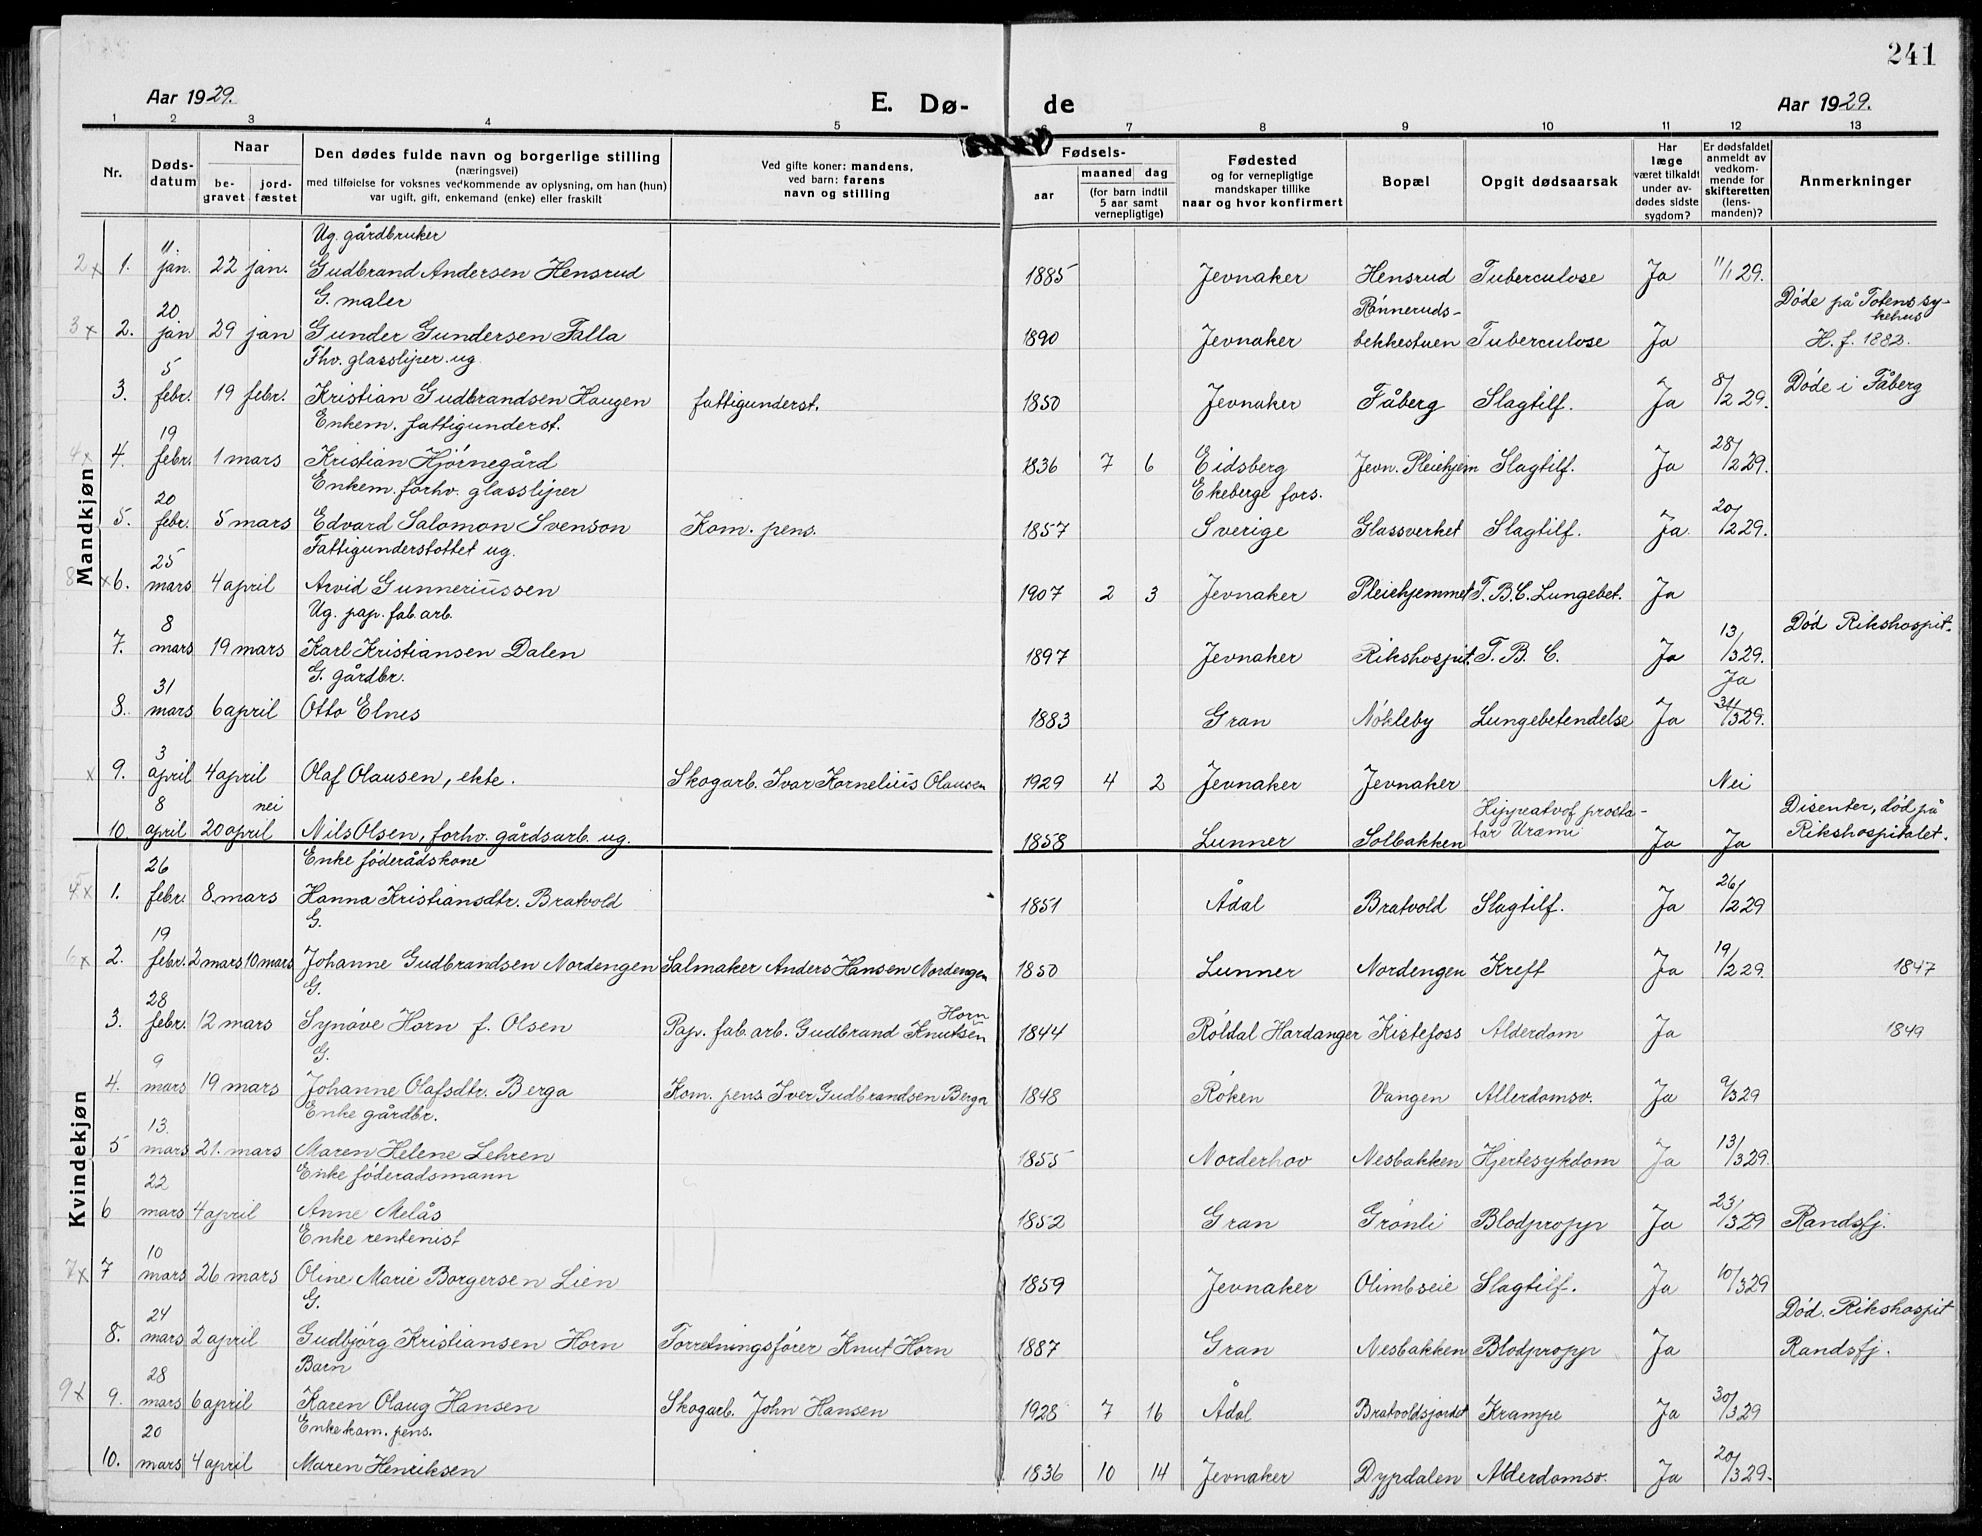 241
Aar 1929.
E. Dø-
de
Aar 1929.
1 2 3 4 5 6 7 8 9 10 11 12 13
Nr.
Døds-
datum
Naar
be-
gravet
jord-
fæstet
Den dødes fulde navn og borgerlige stilling
(næringsvei)
med tilføielse for voksnes vedkommende av oplysning, om han (hun)
var ugift, gift, enkemand (enke) eller fraskilt
Ved gifte koner: mandens,
ved barn: farens
navn og stilling
Fødsels-
aar
maaned dag
(for barn indtil
5 aar samt
vernepligtige)
Fødested
og for vernepligtige
mandskaper tillike
naar og hvor konfirmert
Bopæl
Opgit dødsaarsak
Har
læge
været tilkaldt
under av-
dødes sidste
sygdom?
Er dødsfaldet
anmeldt av
vedkom-
mende for
skifteretten
(lens-
manden)?
Anmerkninger
Mandkjøn
Ug. gårdbruker
2x 1. 11. jan. 22 jan. Gudbrand Andersen Hensrud 1885 Jevnaker Hensrud Tuberculose Ja 11/1 29.
G. maler Rønneruds- Døde på Totens sy-
kehus
3x 2. 20 jan 29 jan Gunder Gundersen Falla 1890 Jevnaker bekkestuen Tuberculose Ja H. f. 1882.
Fhv. glassliper. ug.
3. 5 febr. 19 febr. Kristian Gudbrandsen Haugen fattigunderst. 1850 Jevnaker Fåberg Slagtilf. Ja 8/2 29. Døde i Fåberg
Enkem. fattigunderst.
4x 4. 19 febr. 1 mars Kristian Hjørnegård 1836 7 6 Eidsberg Jevn. Pleiehjem Slagtilf. Ja 28/2 29.
Enkem. forhv. glassliper Ekeberge fors.
5. 20 febr. 5 mars Edvard Salomon Svenson Kom. pens. 1857 Sverige Glassverket Slagtilf. Ja. 20/2 29.
Fattigunderstottet ug.
8x 6. 25 mars 4 april Arvid Gunneriussen 1907 2 3 Jevnaker Pleiehjemmet T.B.C. Lungebet. Ja
Ug. pap. fab. arb. Død Rikshospit.
7. 8 mars 19 mars Karl Kristiansen Dalen 1897 Jevnaker Rikshospit. T. B. C. Ja 13/3 29.
G. gårdbr. Ja
8. 31 mars 6 april Otto Elnes 1883 Gran Nøkleby Lungebetendelse Ja 31/3 29.
x 9. 3 april 4 april Olaf Olausen, ekte. Skogarb. Ivar Kornelius Olausen 1929 4 2 Jevnaker Jevnaker Nei
nei prosta- Disenter, død på
10. 8 april 20 april Nils Olsen, forhv. gårdsarb. ug. 1858 Lunner Solbakken tar Uræmi Ja Ja Rikshospitalet.
Kvindekjøn
Enke føderådskone
x 1. 26 febr. 8 mars Hanna Kristiansdtr. Bratvold 1851 Ådal Bratvold Slagtilf. Ja 26/2 29
G.
6x 2. 19 febr. 2 mars 10 mars Johanne Gudbrandsen Nordengen Salmaker Anders Hansen Nordengen 1850 Lunner Nordengen Kreft Ja 19/2 29. 1847
G. Horn
3. 28 febr. 12 mars Synøve Horn f. Olsen Pap. fab. arb. Gudbrand Knutsen 1844 Røldal Hardanger Kistefoss Alderdom Ja 1849
G.
4. 9 mars 19 mars Johanne Olafsdtr. Berga Kom. pens. Iver Gudbrandsen Berga 1848 Røken Vangen Allerdomsv. Ja 9/3 29
Enke gårdbr.
5 13. mars 21. mars Maren Helene Lehren 1855 Norderhov Nesbakken Hjertesykdom Ja 13/3 29.
Enke føderadsmann
6 22 mars 4 april Anne Melås 1852 Gran Grønli Blodpropp Ja 23/3 29 Randsfj.
Enke rentenist
7x 7 10 mars 26 mars Oline Marie Borgersen Lien 1859 Jevnaker Olimbseie Slagtilf. Ja 10/3 29
G. Død. Rikshospit
8. 24 mars 2 april Gudbjørg Kristiansen Horn Forretningsfører Knut Horn 1887 Gran Nesbakken Blodpropp Ja Randsfj.
Barn
9x 9. 28 mars 6 april Karen Olaug Hansen Skogarb. John Hansen 1928 7 16 Ådal Bratvoldsjordet Krampe Ja 30/3 29
Enke kom. pens.
10. 20 mars 4 april Maren Henriksen 1836 10 14 Jevnaker Dypdalen Alderdomsv. Ja 20/3 29.